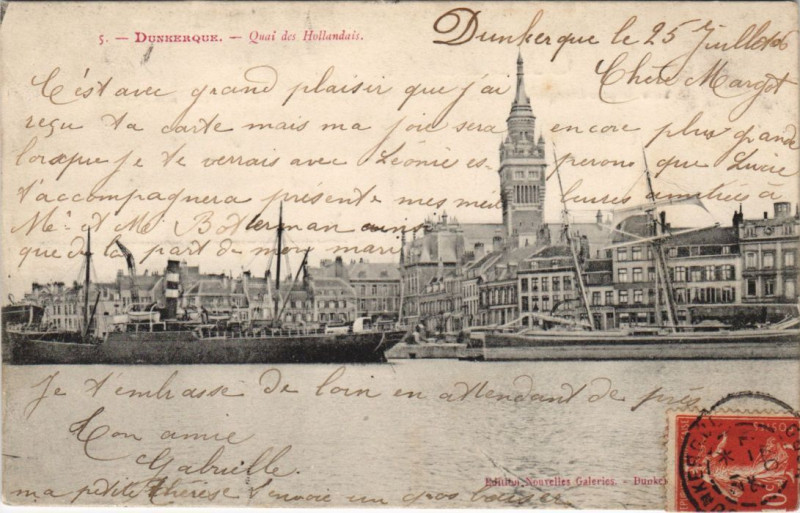 5. — DUNKERQUE. — Quai des Hollandais.
Dunkerque le 25 Juillet 06
Chère Margot
C'est avec grand plaisir que j'ai
reçu ta carte mais ma joie sera encore plus grande
lorsque je te verrais avec Léonie esperons que Lucie
t'accompagnera présente mes meilleures amitiées à
Mr. et Me Botterman ainsi
que de la part de mon mari
Je t'embrasse de loin en attendant de près
Ton amie
Gabrielle.
ma petite Thérèse t'envoie un gros baiser
Edition Nouvelles Galeries. - Dunke
DUNKERQUE
10